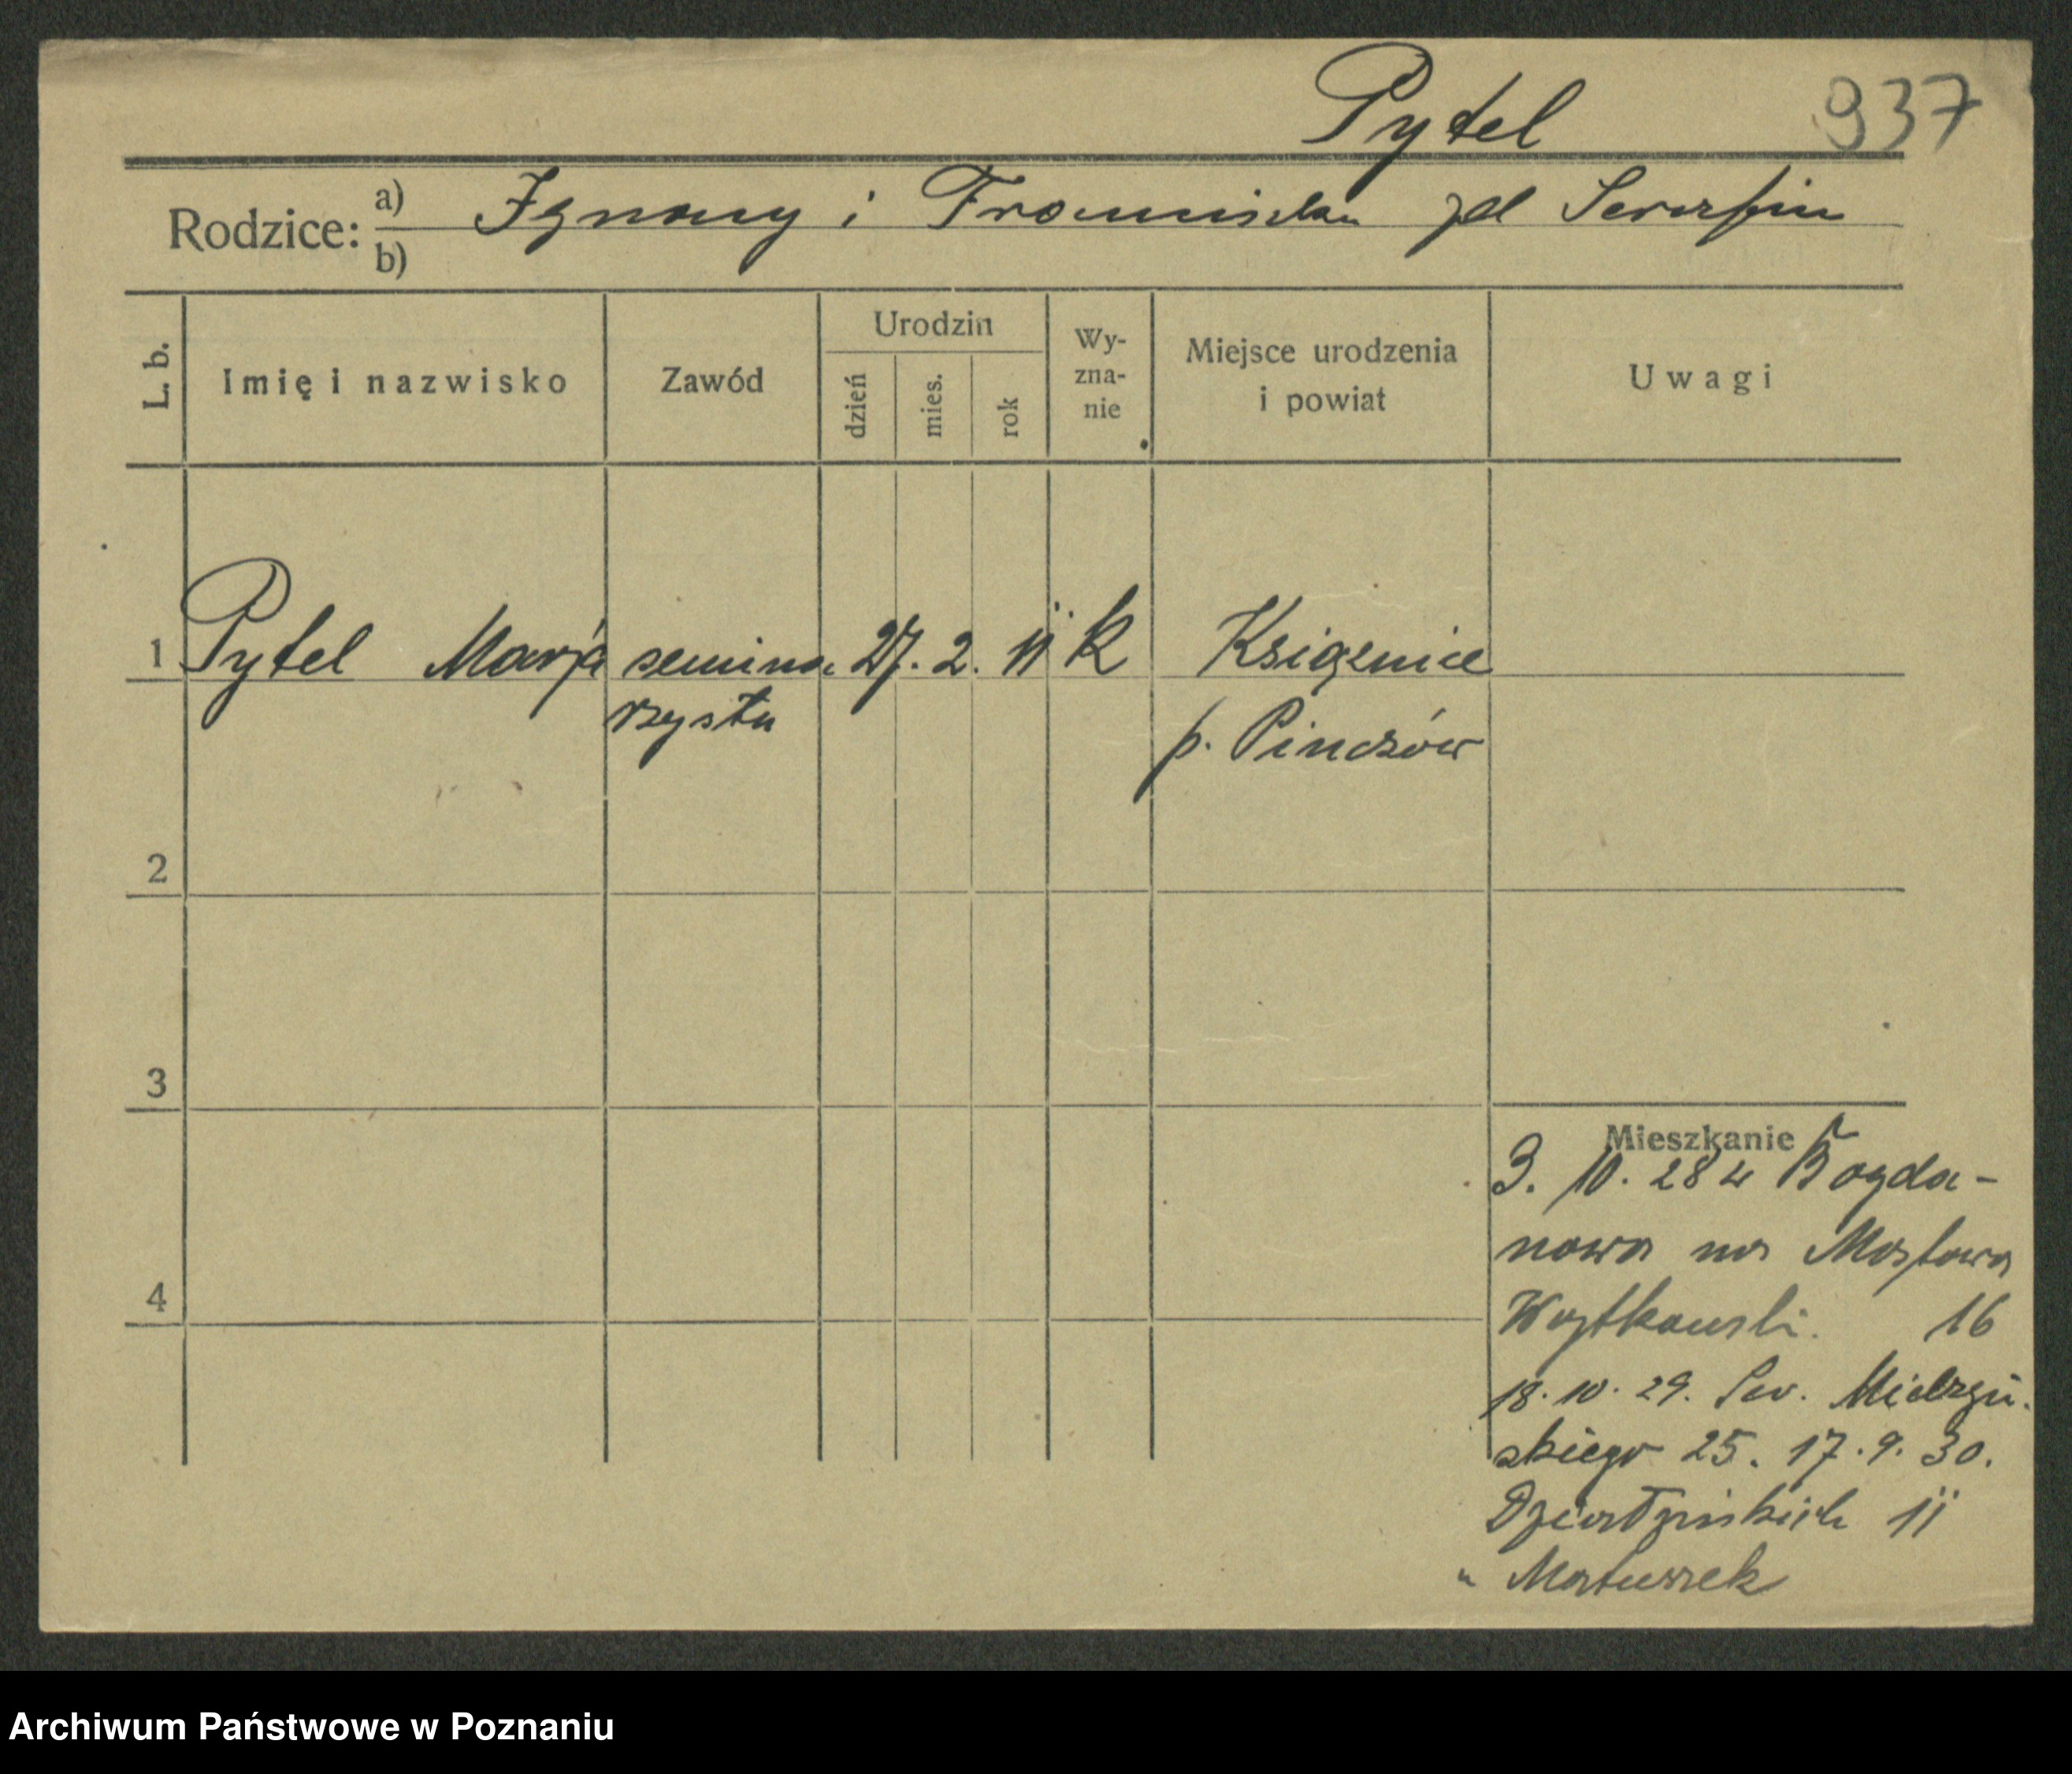 Pytel 937
Rodzice: a) Ignacy i Franciszka zd Serafin
b)
L. b. Imię i nazwisko Zawód Urodzin dzień mies. rok Wy-zna-nie Miejsce urodzenia i powiat Uwagi
1 Pytel Marja semina 27. 2. 11 k Książnice
rzystka p. Pinczów
2
3
Mieszkanie
3. 10. 28 z Bogda-
nowa na Mostowa
4 Wojtkowski. 16
18. 10. 29. Sew. Mielżyń.
skiego 25. 17. 9. 30.
Działyńskich 11
u Matuszek
Archiwum Państwowe w Poznaniu